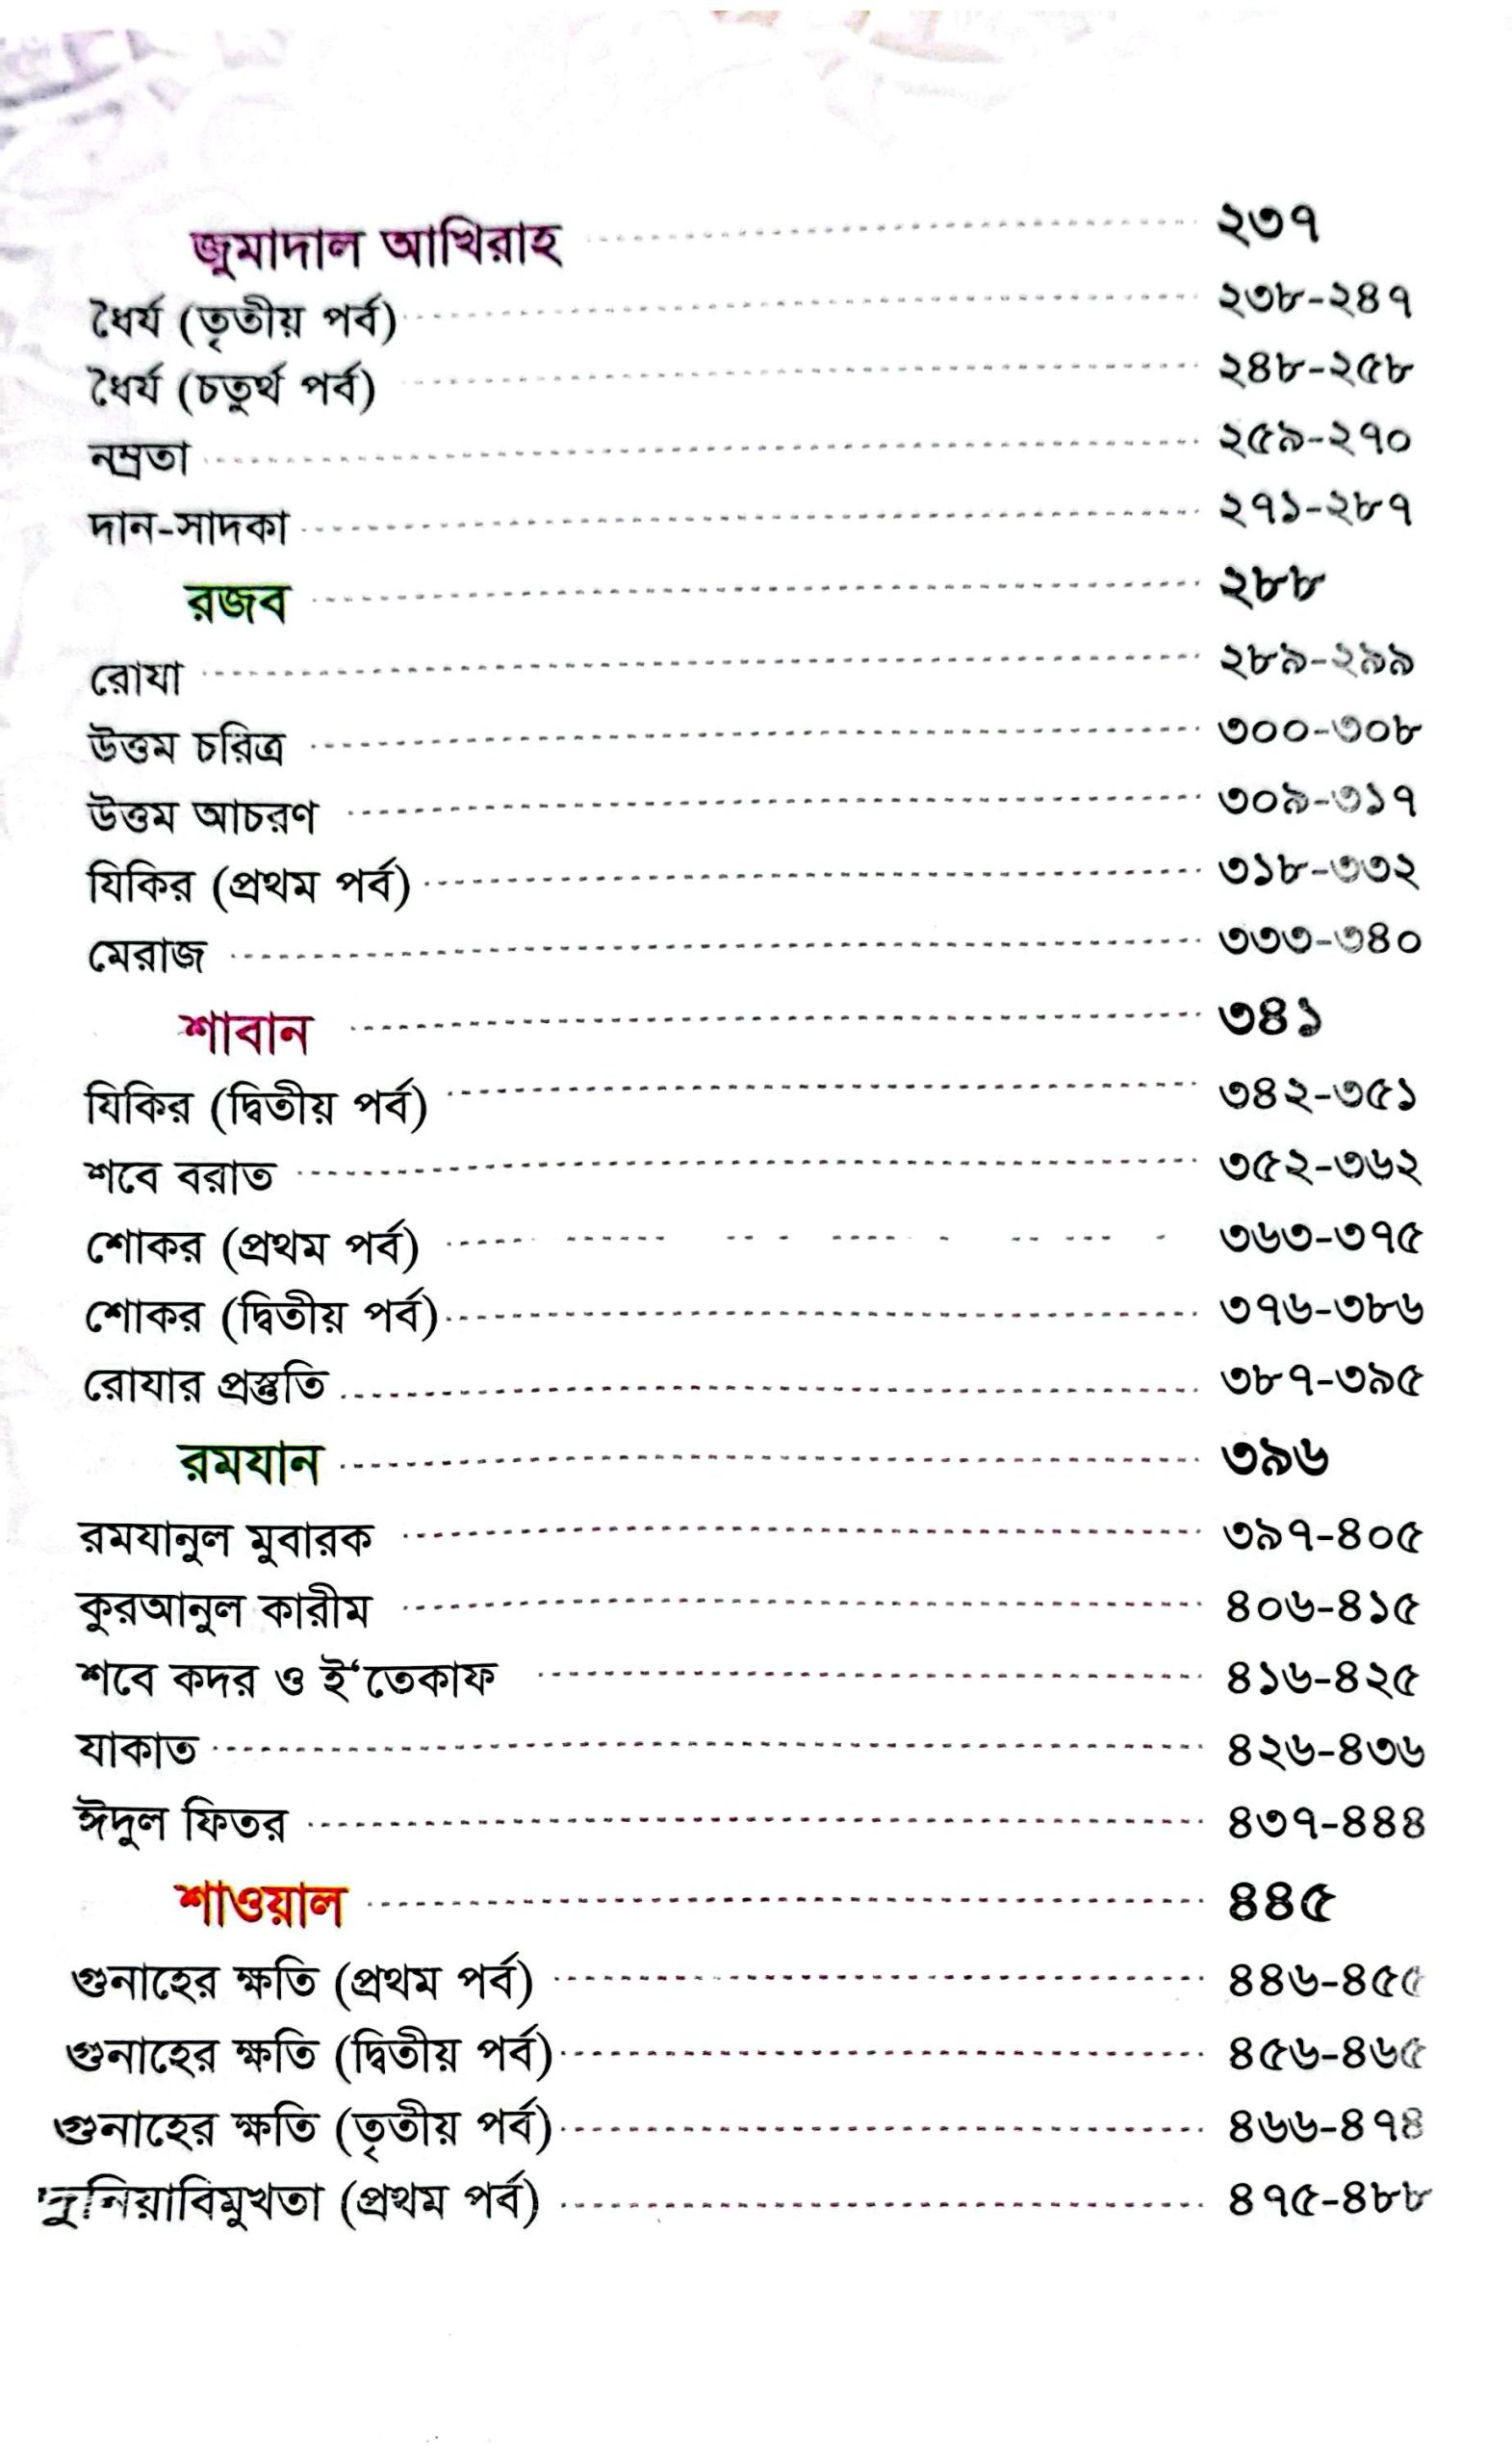 জুমাদাল আখিরাহ ২৩৭
ধৈর্য (তৃতীয় পর্ব) ২৩৮-২৪৭
ধৈর্য (চতুর্থ পর্ব) ২৪৮-২৫৮
নম্রতা ২৫৯-২৭০
দান-সাদকা ২৭১-২৮৭
রজব ২৮৮
রোযা ২৮৯-২৯৯
উত্তম চরিত্র ৩০০-৩০৮
উত্তম আচরণ ৩০৯-৩১৭
যিকির (প্রথম পর্ব) ৩১৮-৩৩২
মেরাজ ৩৩৩-৩৪০
শাবান ৩৪১
যিকির (দ্বিতীয় পর্ব) ৩৪২-৩৫১
শবে বরাত ৩৫২-৩৬২
শোকর (প্রথম পর্ব) ৩৬৩-৩৭৫
শোকর (দ্বিতীয় পর্ব) ৩৭৬-৩৮৬
রোযার প্রস্তুতি ৩৮৭-৩৯৫
রমযান ৩৯৬
রমযানুল মুবারক ৩৯৭-৪০৫
কুরআনুল কারীম ৪০৬-৪১৫
শবে কদর ও ই‘তেকাফ ৪১৬-৪২৫
যাকাত ৪২৬-৪৩৬
ঈদুল ফিতর ৪৩৭-৪৪৪
শাওয়াল ৪৪৫
গুনাহের ক্ষতি (প্রথম পর্ব) ৪৪৬-৪৫৫
গুনাহের ক্ষতি (দ্বিতীয় পর্ব) ৪৫৬-৪৬৫
গুনাহের ক্ষতি (তৃতীয় পর্ব) ৪৬৬-৪৭৪
দুনিয়াবিমুখতা (প্রথম পর্ব) ৪৭৫-৪৮৮